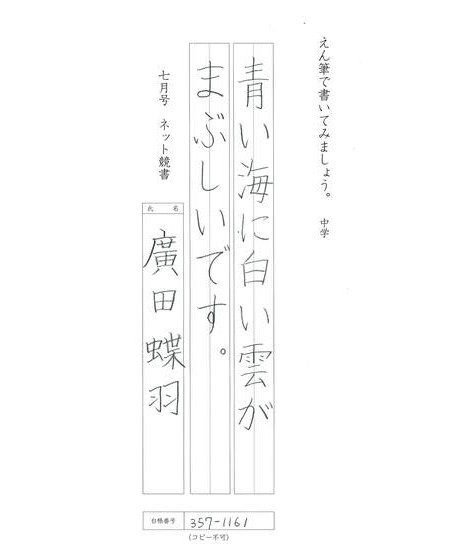 えん筆で書いてみましょう。 中学
青い海に白い雲が
まぶしいです。
七月号 ネット競書
氏名
廣田蝶羽
台帳番号 357-1161
(コピー不可)